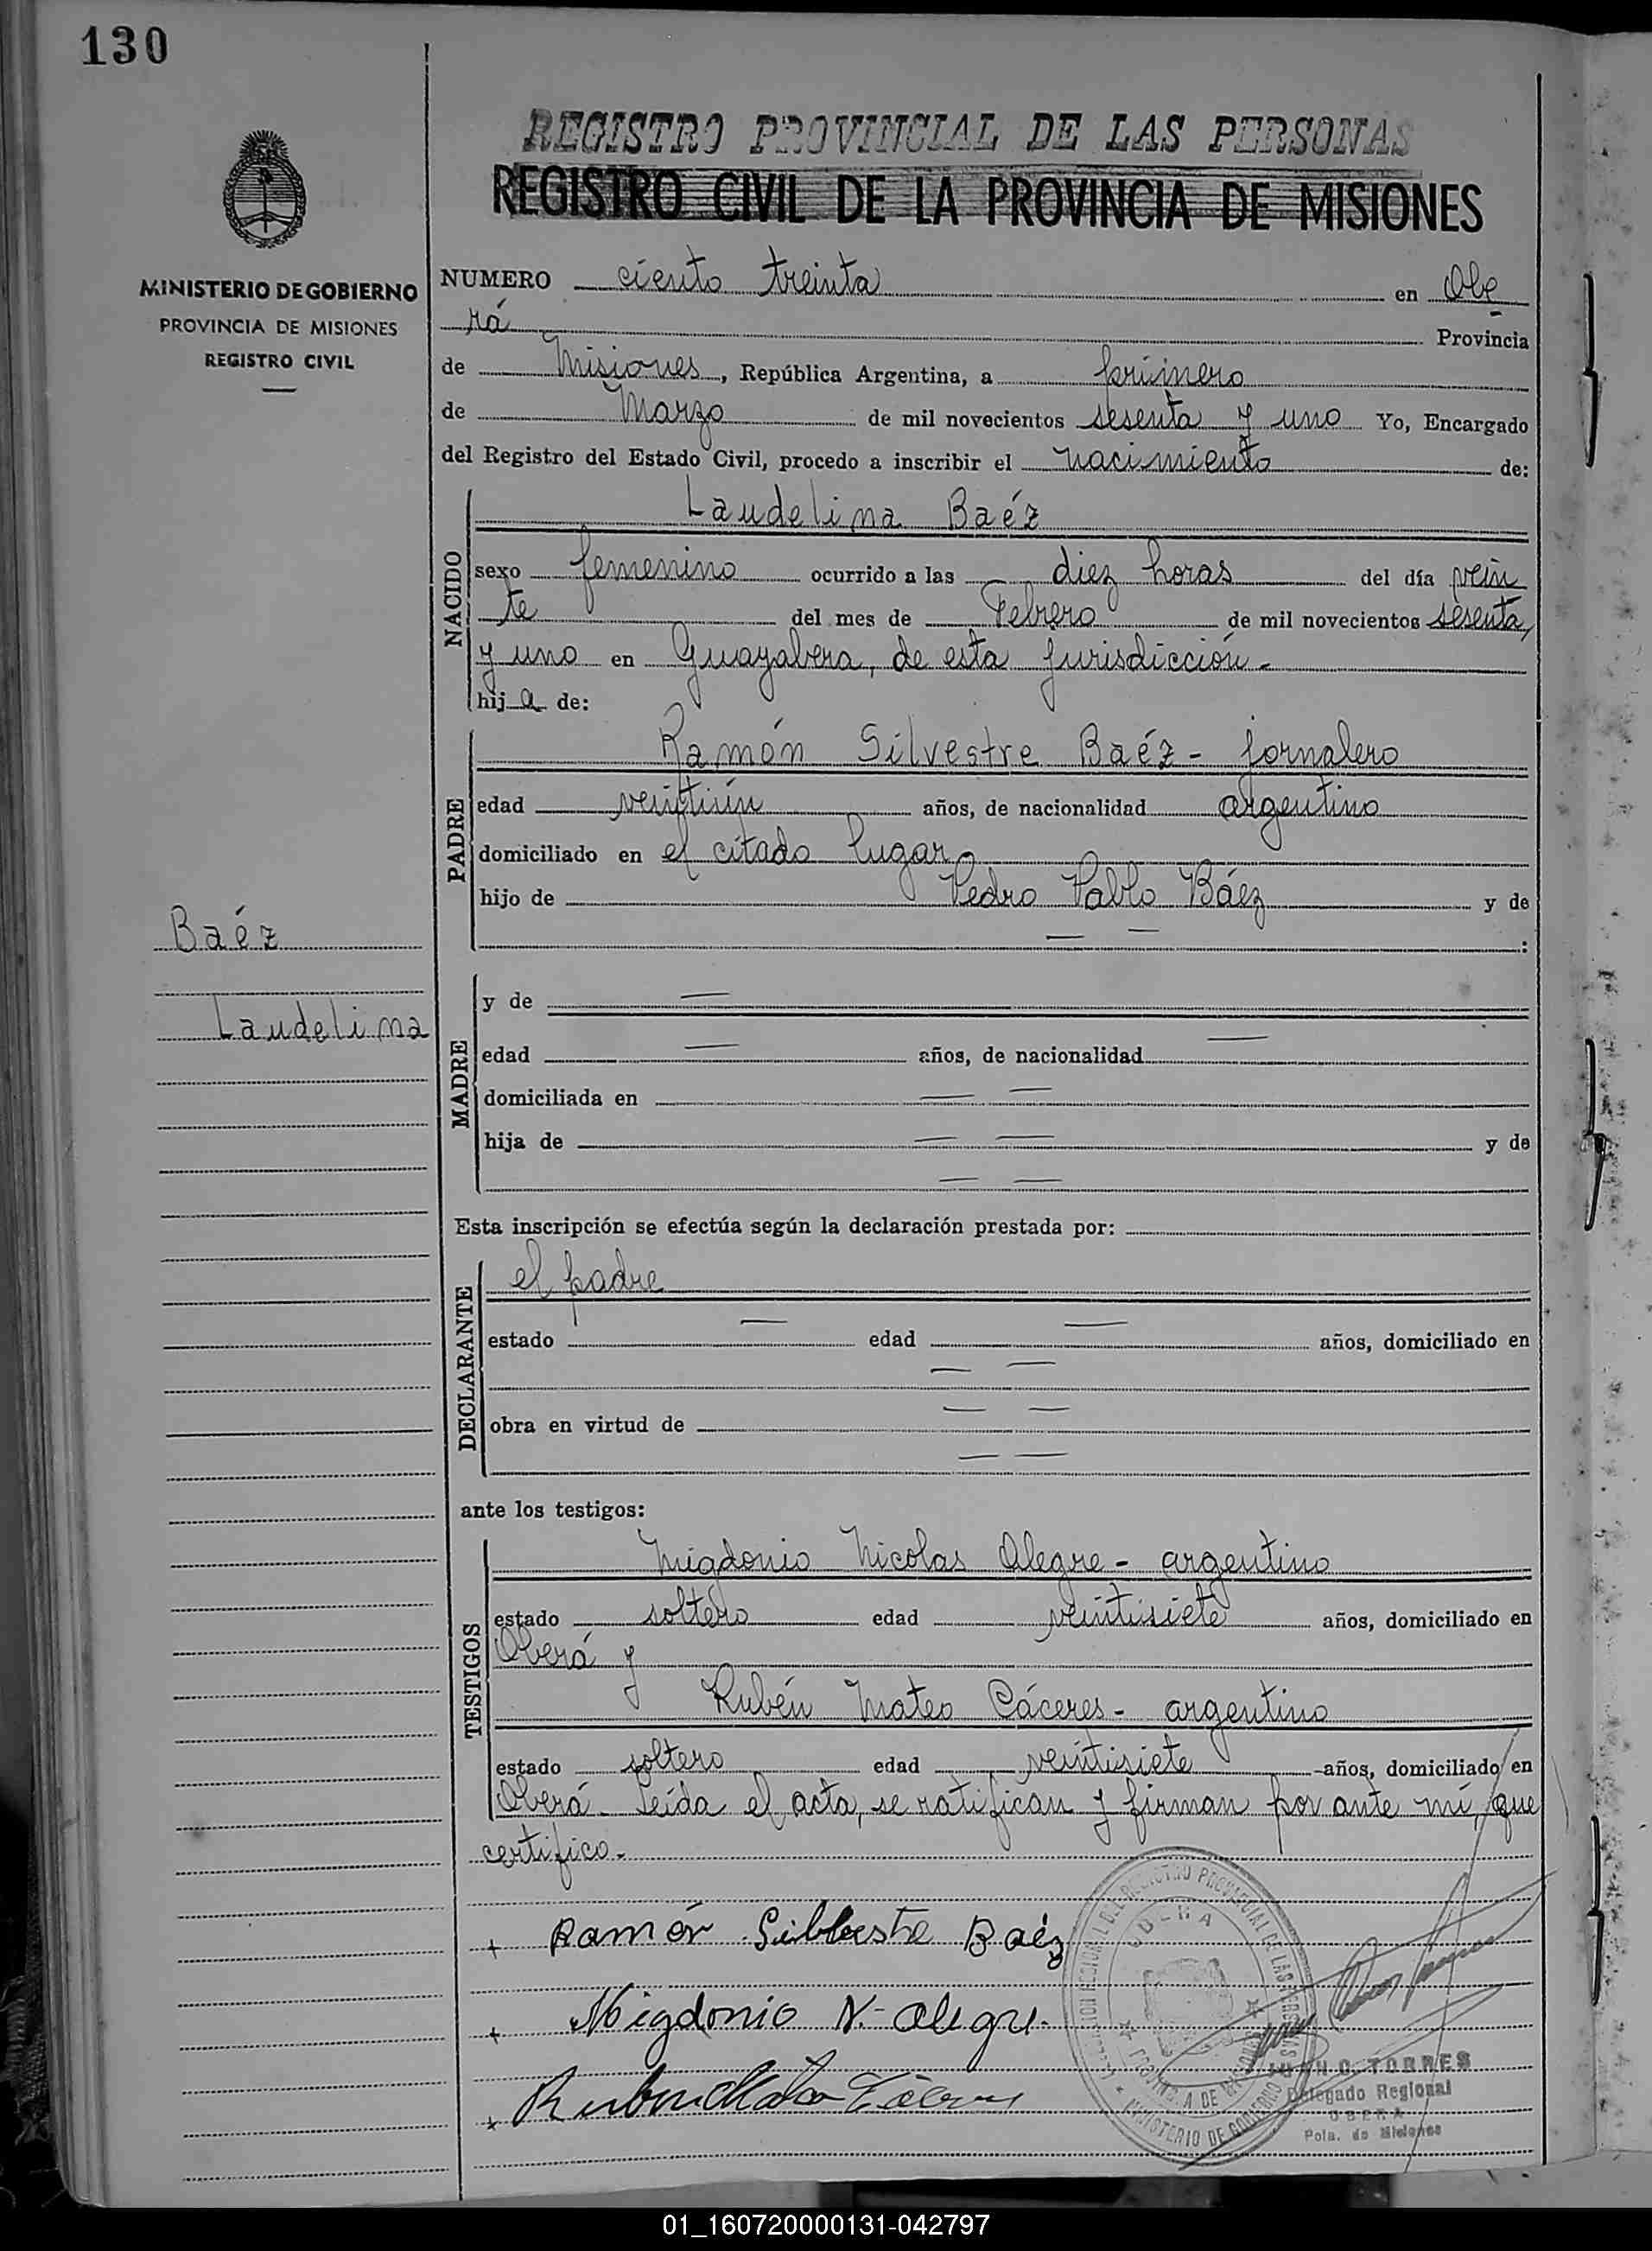 130
REGISTRO PROVINCIAL DE LAS PERSONAS
REGISTRO CIVIL DE LA PROVINCIA DE MISIONES
MINISTERIO DE GOBIERNO
PROVINCIA DE MISIONES
REGISTRO CIVIL
NUMERO ciento treinta en Obe
rá Provincia
de Misiones, República Argentina, a primero
de Marzo de mil novecientos sesenta y uno Yo, Encargado
del Registro del Estado Civil, procedo a inscribir el nacimiento de:
NACIDO
Laudelina Baéz
sexo femenino ocurrido a las diez horas del día vein
te del mes de Febrero de mil novecientos sesenta
y uno en Guayabera, de esta jurisdicción.-
hija de:
PADRE
Ramón Silvestre Baéz - jornalero
edad veintiún años, de nacionalidad argentino
domiciliado en el citado lugar
hijo de Pedro Pablo Báez y de
— — :
Baéz
Laudelina
MADRE
y de —
edad — años, de nacionalidad —
domiciliada en — —
hija de — — y de
— —
Esta inscripción se efectúa según la declaración prestada por:
DECLARANTE
el padre
estado — edad — años, domiciliado en
— —
obra en virtud de — —
— —
ante los testigos:
TESTIGOS
Migdonio Nicolas Alegre - argentino
estado soltero edad veintisiete años, domiciliado en
Oberá y
Rubén Mateo Cáceres - argentino
estado soltero edad veintisiete años, domiciliado en
Oberá - Leída el acta, se ratifican y firman por ante mí, que
certifico.-
+ Ramón Silbestre Baéz
+ Migdonio N. Alegre.
+ Ruben Mateo Cáceres
OBERA
REGISTRO PROVINCIAL DE LAS PERSONAS
MINISTERIO DE GOBIERNO
JUAN O. TORRES
Delegado Regional
OBERA
Pcia. de Misiones
01_160720000131-042797